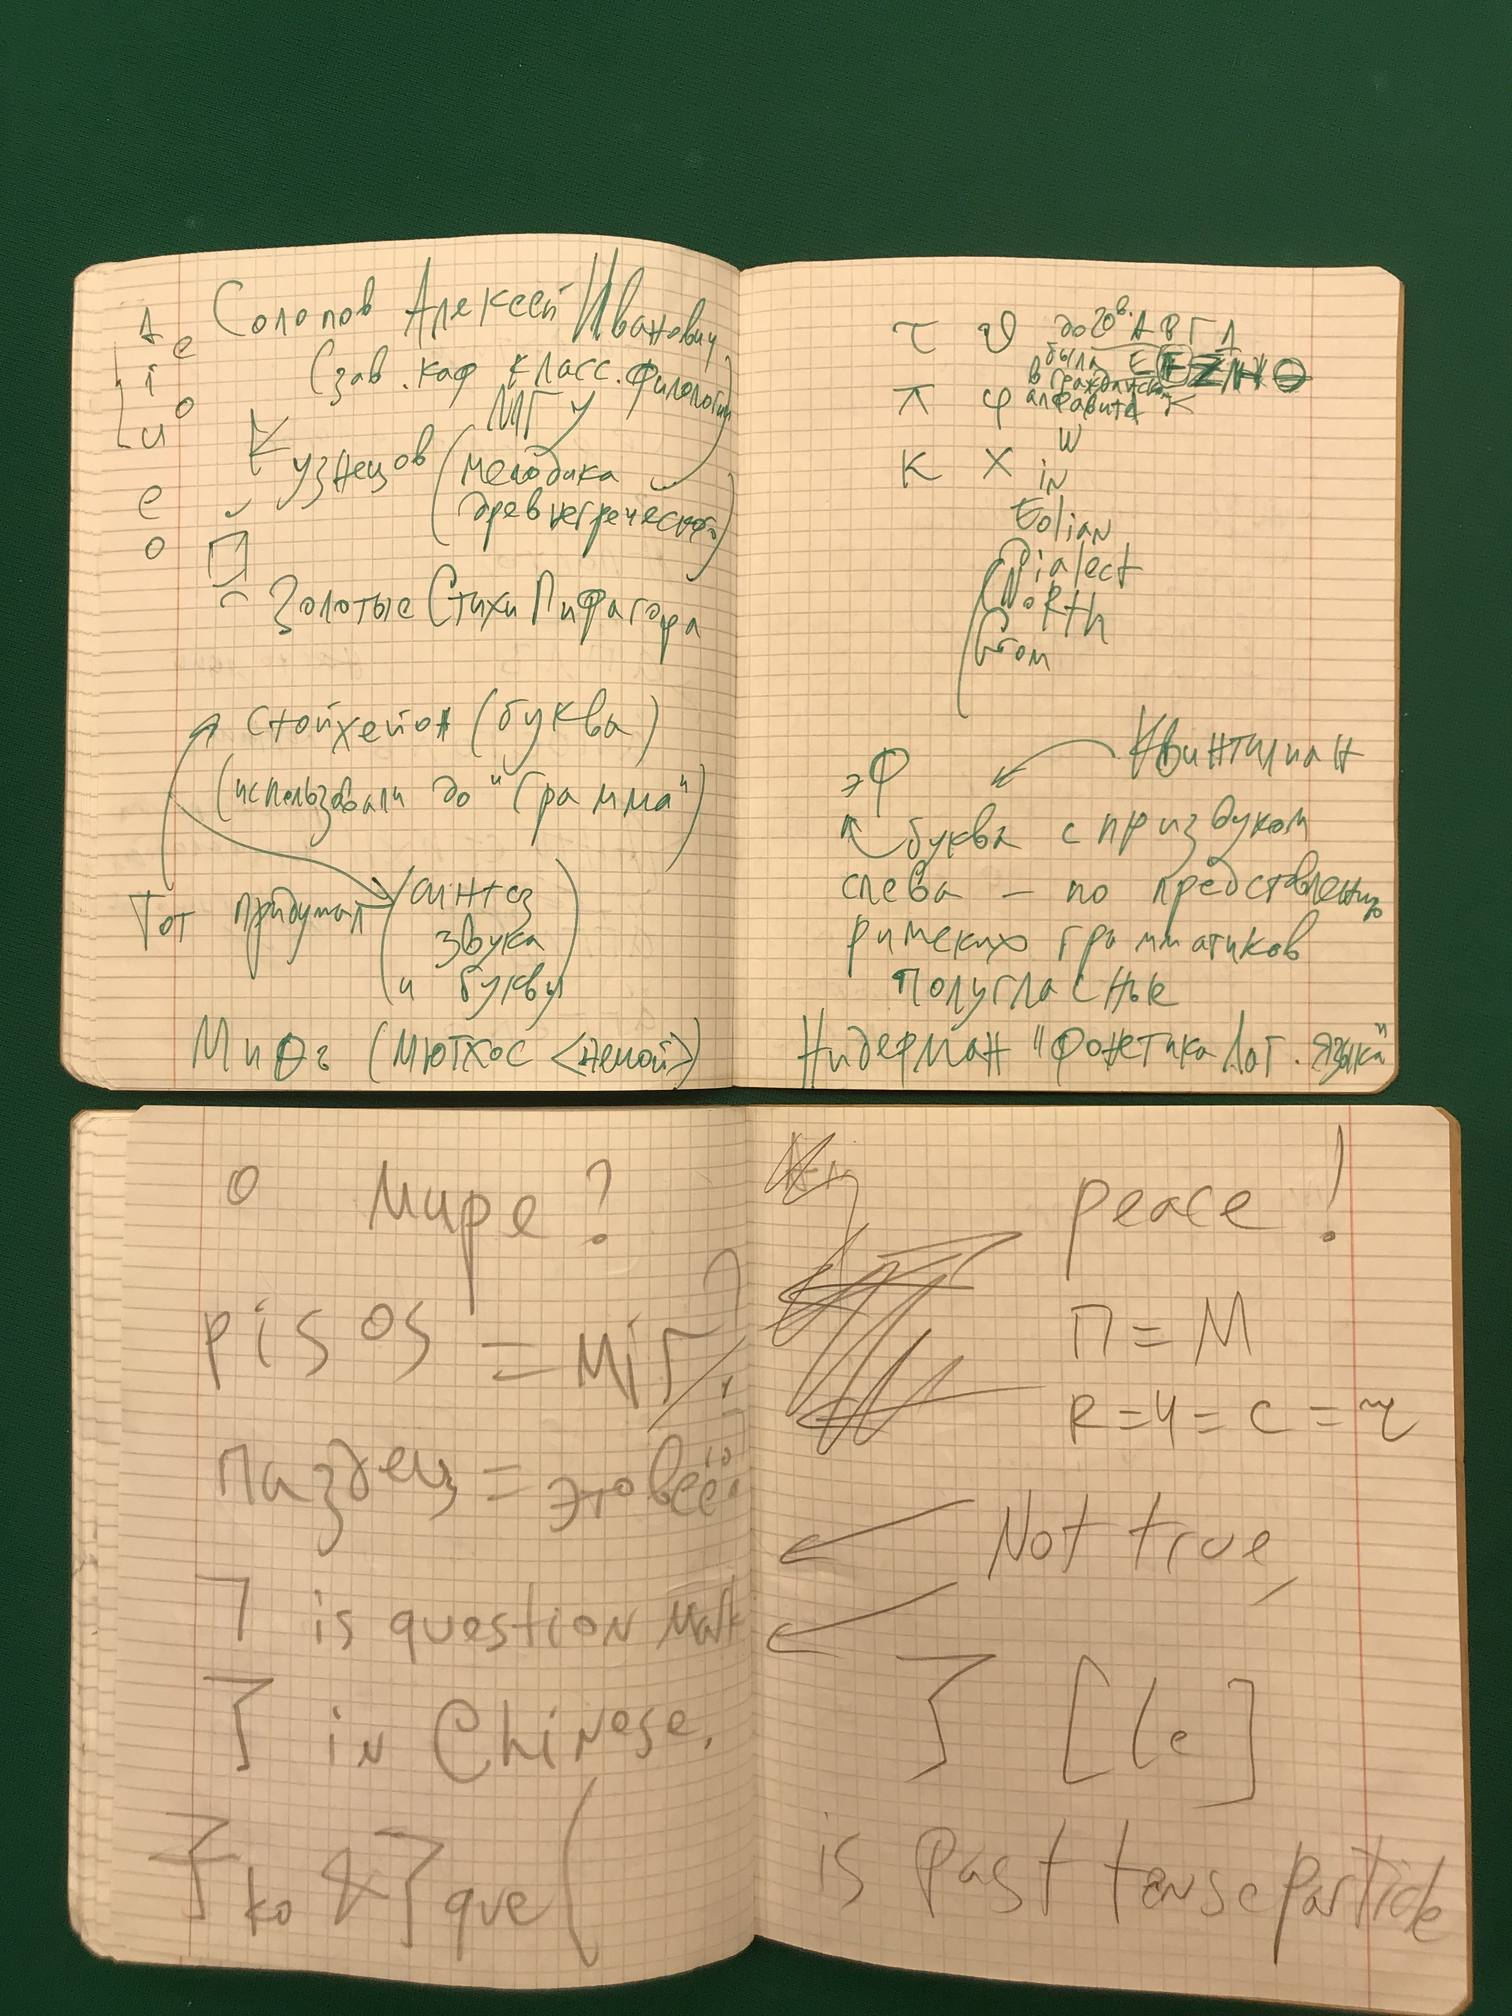 Солопов Алексей Иванович
(зав. каф класс. филологии
МГУ
Кузнецов (мелодика
древнегреческого)
Золотые Стихи Пифагора
А
е
i
о
u
е
о
стойхейон (буква)
(использовали до "Грамма")
Тот придумал (синтез
звука
и буквы)
Миѳъ (мютхос <немой>)
τ ϑ до 20 в. А В Г Δ
была E F Z H Θ
в гражданском
алфавите К
π φ
κ χ W
in
Eolian
Dialect
North
from
Квинтилиан
эФ
буква с призвуком
слева – по представлению
римских грамматиков
полугласные
Нидерман "Фонетика Лат. языка"
о мире?
pisos = мir
паздец = это всё?
ㄱ is question mark
了 in Chinese.
ko & que (
peace!
П = М
R = Ч = С =
Not true,
了 [le]
is past tense particle